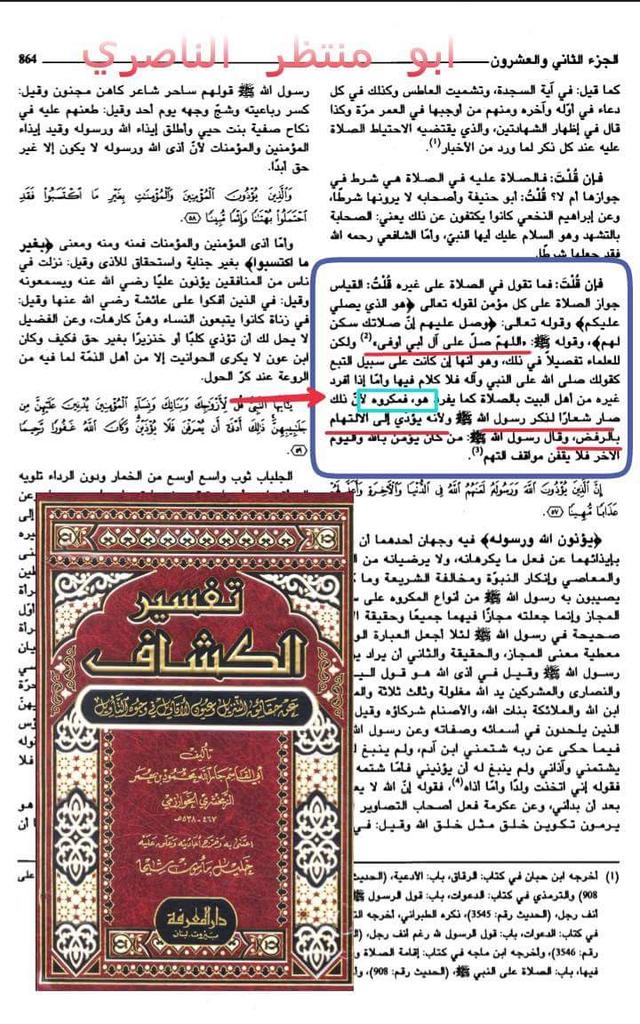 ابو منتظر الناصري
الجزء الثاني والعشرون
864
كما قيل: في آية السجدة، وتشميت العاطس وكذلك في كل
دعاء في أوّله وآخره ومنهم من أوجبها في العمر مرّة وكذا
قال في إظهار الشهادتين، والذي يقتضيه الاحتياط الصلاة
عليه عند كل ذكر لما ورد من الأخبار(١).
فإن قُلْتَ: فالصلاة عليه في الصلاة هي شرط في
جوازها أم لا؟ قُلْتُ: أبو حنيفة وأصحابه لا يرونها شرطًا،
وعن إبراهيم النخعي كانوا يكتفون عن ذلك يعني: الصحابة
بالتشهد وهو السلام عليك أيها النبيّ، وأمّا الشافعي رحمه الله
فقد جعلها شرطًا.
فإن قُلْتَ: فما تقول في الصلاة على غيره قُلْتُ: القياس
جواز الصلاة على كل مؤمن لقوله تعالى ﴿هو الذي يصلي
عليكم﴾ وقوله تعالى: ﴿وصل عليهم إنّ صلاتك سكن
لهم﴾، وقوله ﷺ: «اللهمّ صلّ على آل أبي أوفى»(٢) ولكن
للعلماء تفصيلًا في ذلك، وهو أنها إن كانت على سبيل التبع
كقولك صلى الله على النبي وآله فلا كلام فيها وأمّا إذا أفرد
غيره من أهل البيت بالصلاة كما يفرد هو، فمكروه لأنّ ذلك
صار شعارًا لذكر رسول الله ﷺ ولأنه يؤدي إلى الاتهام
بالرفض، وقال رسول الله ﷺ: من كان يؤمن بالله واليوم
الآخر فلا يقفن مواقف التهم(٣).
إِنَّ الَّذِينَ يُؤْذُونَ اللَّهَ وَرَسُولَهُ لَعَنَهُمُ اللَّهُ فِي الدُّنْيَا وَالْآخِرَةِ وَأَعَدَّ لَهُمْ
عَذَابًا مُّهِينًا ﴿٥٧﴾
﴿يؤذون الله ورسوله﴾ فيه وجهان أحدهما أن
بإيذائهما عن فعل ما يكرهانه، ولا يرضيانه من
والمعاصي وإنكار النبوّة ومخالفة الشريعة وما
يصيبون به رسول الله ﷺ من أنواع المكروه على
المجاز وإنما جعلته مجازًا فيهما جميعًا وحقيقة
صحيحة في رسول الله ﷺ لئلا أجعل العبارة
معطية معنى المجاز، والحقيقة والثاني أن يراد
رسول الله ﷺ وقيل في أذى الله هو قول
والنصارى والمشركين يد الله مغلولة وثالث ثلاثة
ابن الله والملائكة بنات الله، والأصنام شركاؤه وقيل
الذين يلحدون في أسمائه وصفاته وعن رسول
فيما حكى عن ربه شتمني ابن آدم، ولم ينبغ
يشتمني وآذاني ولم ينبغ له أن يؤذيني فأمّا شتمه
فقوله إني اتخذت ولدًا وأمّا أذاه(٤)، فقوله إنّ الله لا
بعد أن بدأني، وعن عكرمة فعل أصحاب التصاوير
يرمون تكوين خلق مثل خلق الله وقيل: في
رسول الله ﷺ قولهم ساحر شاعر كاهن مجنون وقيل:
كسر رباعيته وشجّ وجهه يوم أحد وقيل: طعنهم عليه في
نكاح صفية بنت حيي وأطلق إيذاء الله ورسوله وقيد إيذاء
المؤمنين والمؤمنات لأنّ أذى الله ورسوله لا يكون إلا غير
حق أبدًا.
وَالَّذِينَ يُؤْذُونَ الْمُؤْمِنِينَ وَالْمُؤْمِنَاتِ بِغَيْرِ مَا اكْتَسَبُوا فَقَدِ
احْتَمَلُوا بُهْتَانًا وَإِثْمًا مُّبِينًا ﴿٥٨﴾
وأمّا أذى المؤمنين والمؤمنات فمنه ومنه ومعنى ﴿بغير
ما اكتسبوا﴾ بغير جناية واستحقاق للأذى وقيل: نزلت في
ناس من المنافقين يؤذون عليًا رضي الله عنه ويسمعونه
وقيل: في الذين أفكوا على عائشة رضي الله عنها وقيل:
في زناة كانوا يتبعون النساء وهنّ كارهات، وعن الفضيل
لا يحل لك أن تؤذي كلبًا أو خنزيرًا بغير حق فكيف وكان
ابن عون لا يكرى الحوانيت إلا من أهل الذمّة لما فيه من
الروعة عند كرّ الحول.
يَا أَيُّهَا النَّبِيُّ قُل لِّأَزْوَاجِكَ وَبَنَاتِكَ وَنِسَاءِ الْمُؤْمِنِينَ يُدْنِينَ عَلَيْهِنَّ مِن
جَلَابِيبِهِنَّ ذَٰلِكَ أَدْنَىٰ أَن يُعْرَفْنَ فَلَا يُؤْذَيْنَ وَكَانَ اللَّهُ غَفُورًا رَّحِيمًا
﴿٥٩﴾
الجلباب ثوب واسع أوسع من الخمار ودون الرداء تلويه
تفسير
الكشاف
عن حقائق التنزيل وعيون الأقاويل في وجوه التأويل
تأليف
أبي القاسم جار الله محمود بن عمر
الزمخشري الخوارزمي
٤٦٧ - ٥٣٨هـ
اعتنى به وخرج أحاديثه وعلق عليه
خليل مأمون شيحا
دار المعرفة
بيروت - لبنان
(١) أخرجه ابن حبان في كتاب: الرقاق، باب: الأدعية، (الحديث
908) والترمذي في كتاب: الدعوات، باب: قول الرسول
أنف رجل، (الحديث رقم: 3545)، ذكره الطبراني، أخرجه
في كتاب: الدعوات، باب: قول الرسول ﷺ رغم أنف رجل،
رقم: 3546)، وأخرجه ابن ماجه في كتاب: إقامة الصلاة
فيها، باب: الصلاة على النبي ﷺ، (الحديث رقم: 908)،